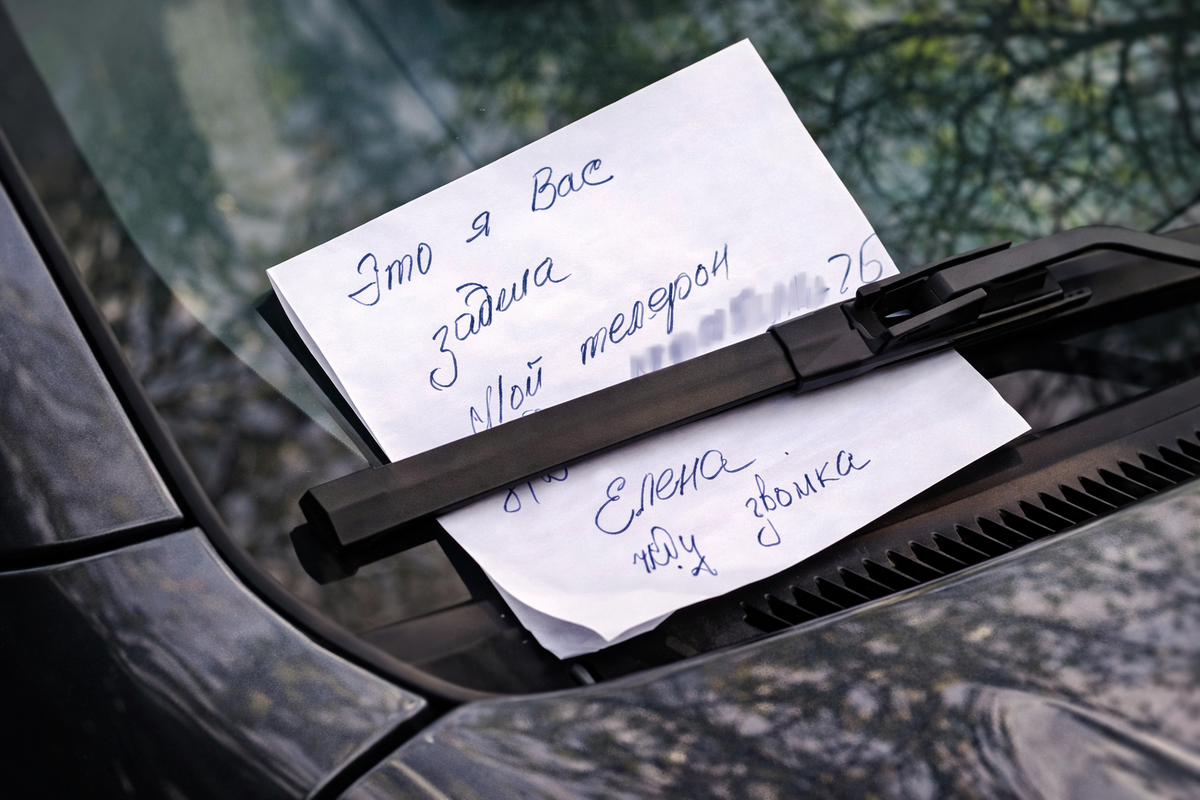 Это я Вас
задела
Мой телефон
26
Елена
жду звонка